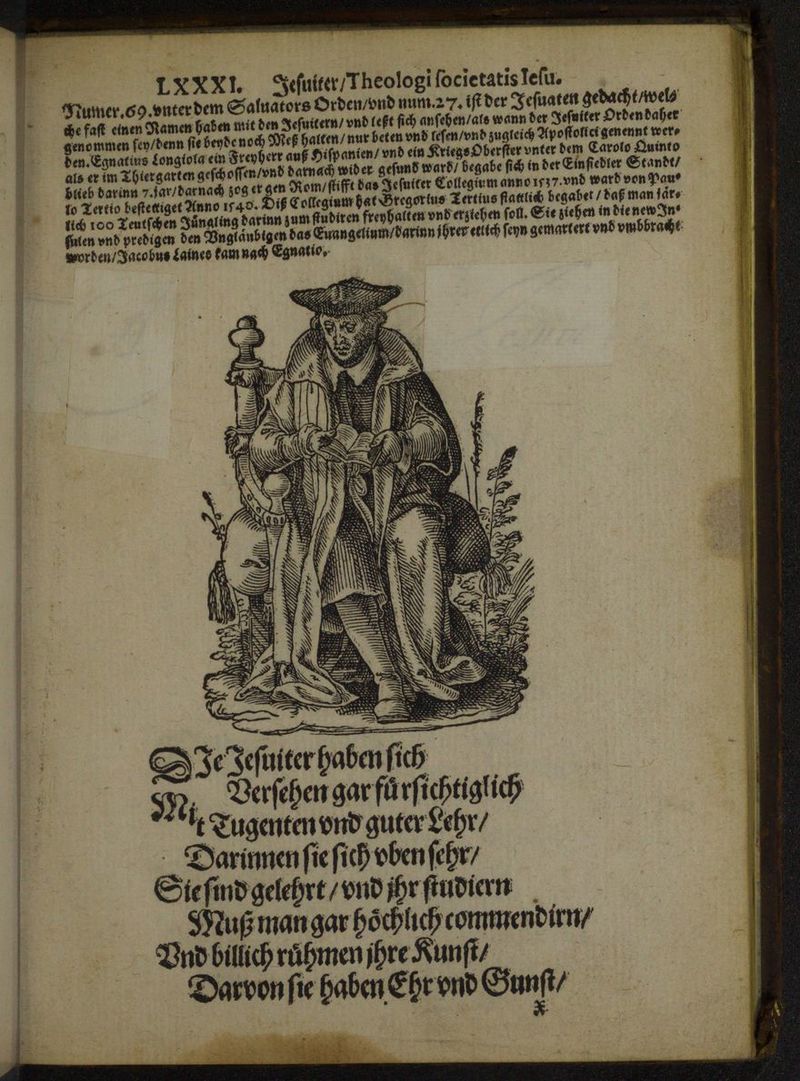 LXXXI. Jesuiter/Theologi societatis Iesu.
Numer.69.vnter dem Saluators Orden/vnd num.27. ist der Jesuaten gedacht/wel⸗
che fast einen Namen haben mit den Jesuitern/ vnd leßt sich ansehen/als wann der Jesuiter Orden daher
genommen sey/denn sie beyde noch Meß halten/ nur beten vnd lesen/vnd zugleich Apostolici genennt wer⸗
den. Egnatius Longiola ein Freyherr auß Hispanien/ vnd ein KriegsOberster vnter dem Carolo Quinto
als er im Thiergarten geschossen/vnd darnach wider gesund ward/ begabe sich in der Einsiedler Standt/
blieb darinn 7.jar/darnach zog er gen Rom/stifft das Jesuiter Collegium anno 1537.vnd ward von Pau⸗
lo Tertio bestettiget Anno 1540. Diß Collegium hat Gregorius Tertius stattlich begabet / daß man jär⸗
lich 100 Teutschen Jüngling darinn zum studiren freyhalten vnd erziehen soll. Sie ziehen in die new In⸗
sulen vnd predigen den Vngläubigen das Euangelium/darinn jhrer etlich seyn gemartert vnd vmbbracht
worden/Jacobus Laines kam nach Egnatio.
DJe Jesuiter haben sich
Versehen gar fürsichtiglich
Mit Tugenten vnd guter Lehr/
Darinnen sie sich vben sehr/
Sie sind gelehrt/vnd jhr studiern
Muß man gar höchlich commendirn/
Vnd billich rühmen jhre Kunst/
Darvon sie haben Ehr vnd Gunst/
X